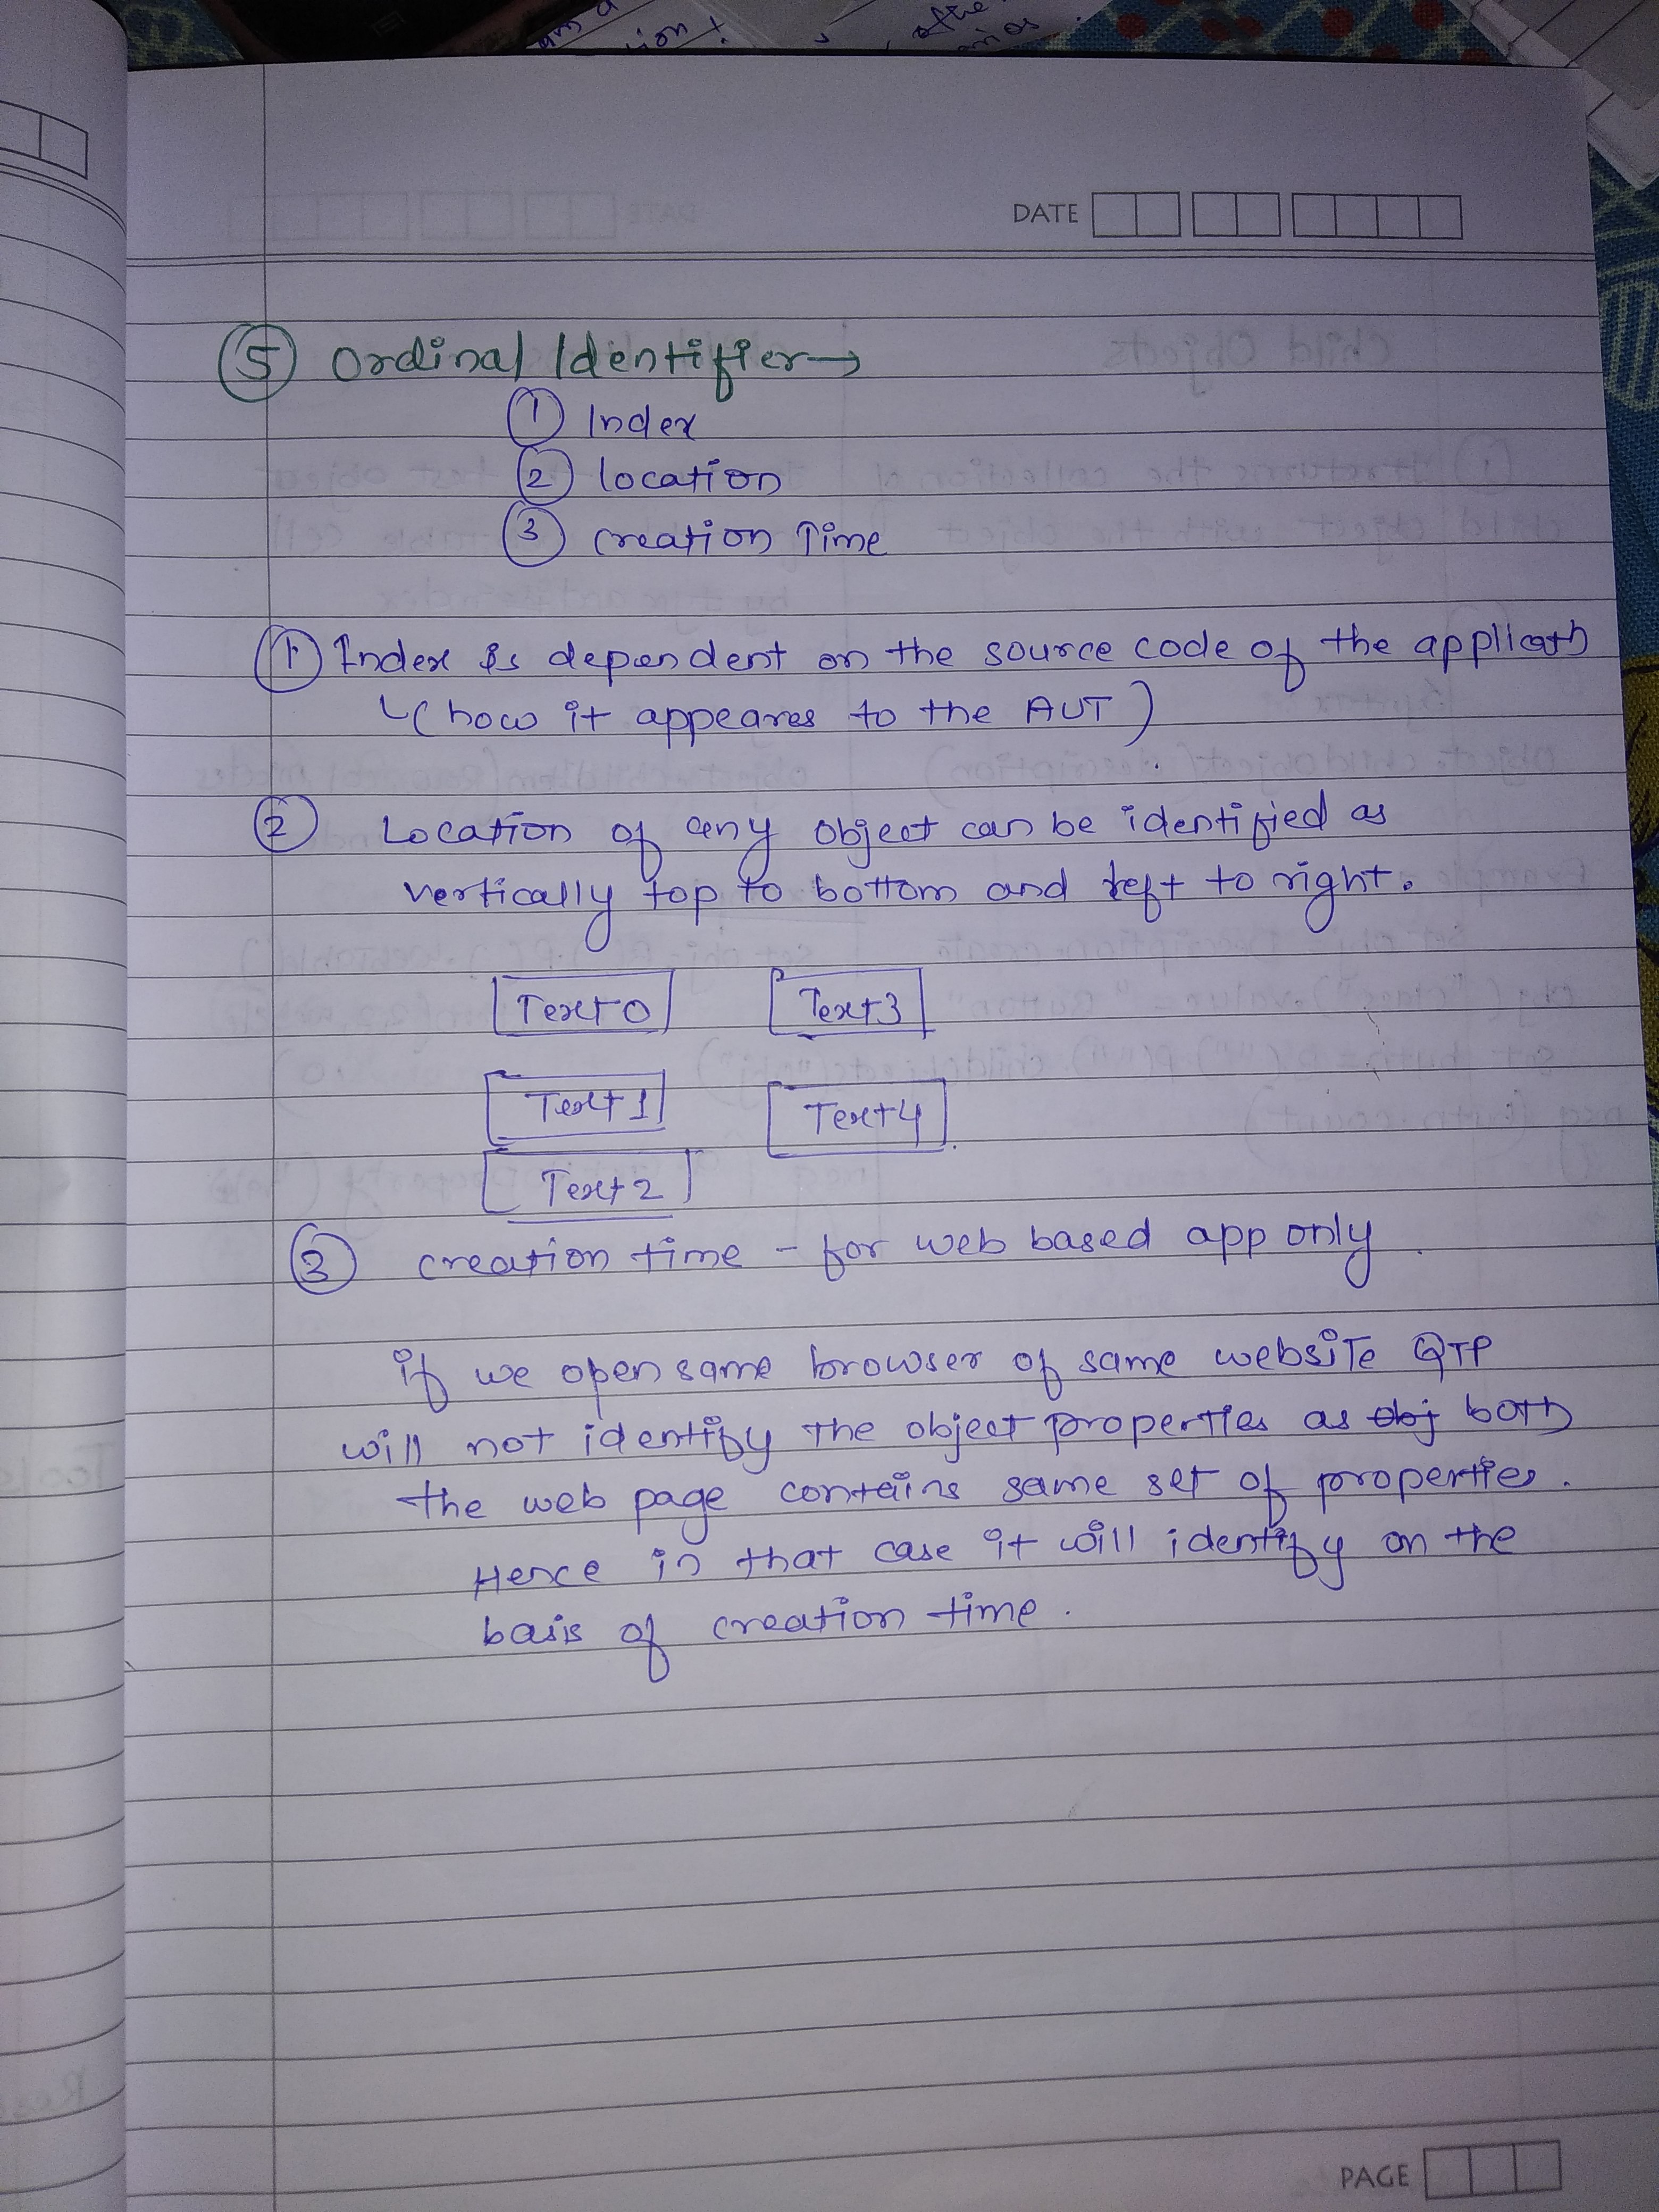 DATE
5 Ordinal Identifier→
1 Index
2 location
3 creation Time
1 Index is dependent on the source code of the applicatn
(how it appeares to the AUT)
2 Location of any object can be identified as
vertically top to bottom and left to right.
Text 0 Text 3
Text 1 Text 4
Text 2
3 creation time - for web based app only.
if we open same browser of same website QTP
will not identify the object properties as obj both
the web page contains same set of properties.
Hence in that case it will identify on the
basis of creation time.
PAGE